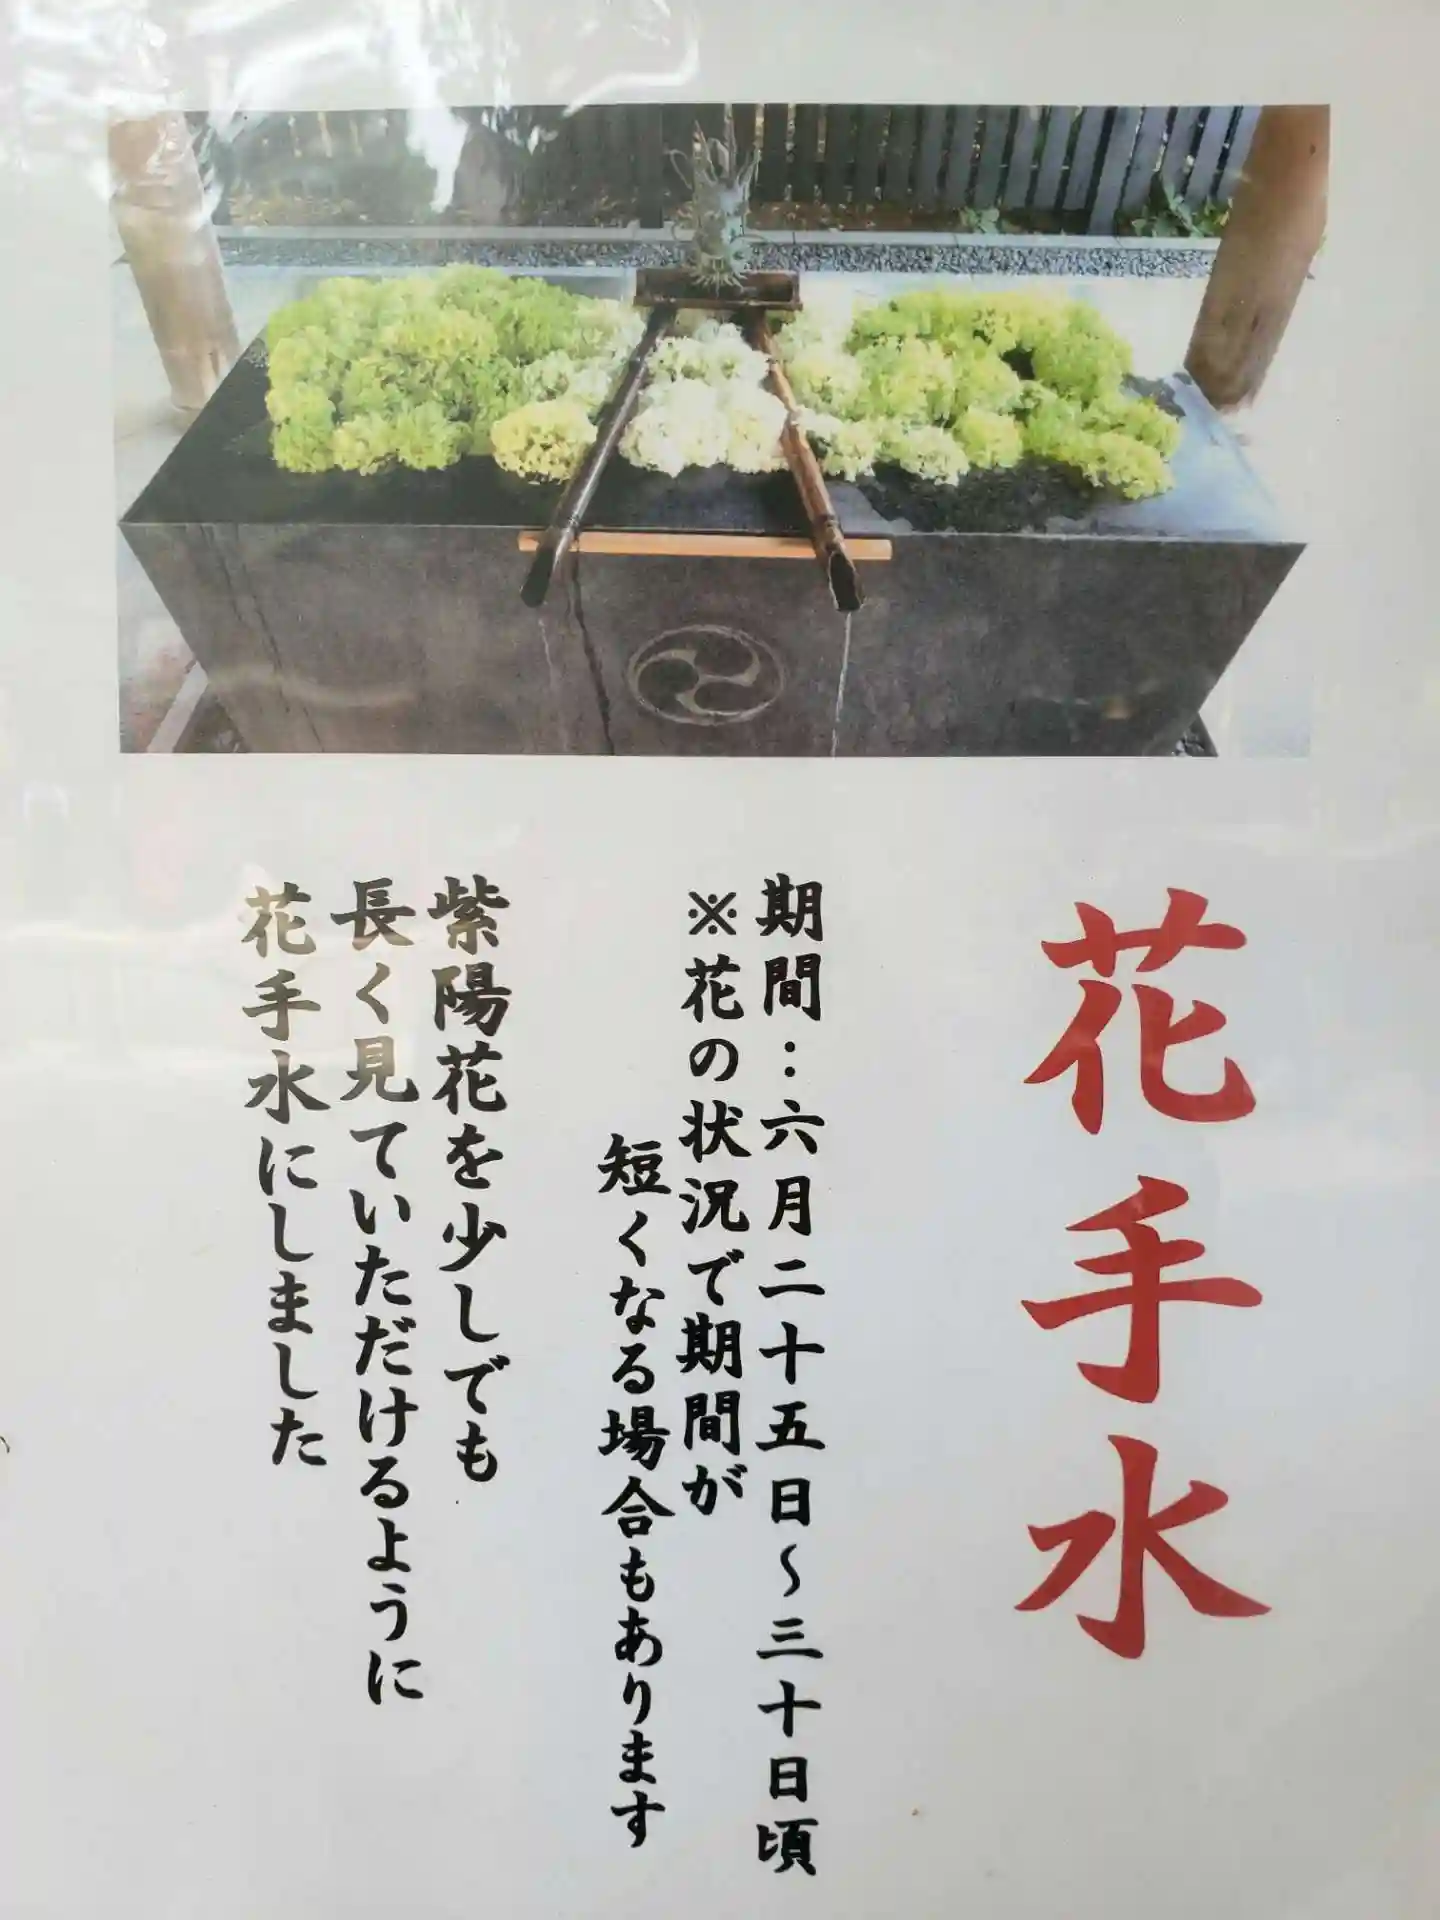 花手水
期間：六月二十五日～三十日頃
※花の状況で期間が
短くなる場合もあります
紫陽花を少しでも
長く見ていただけるように
花手水にしました